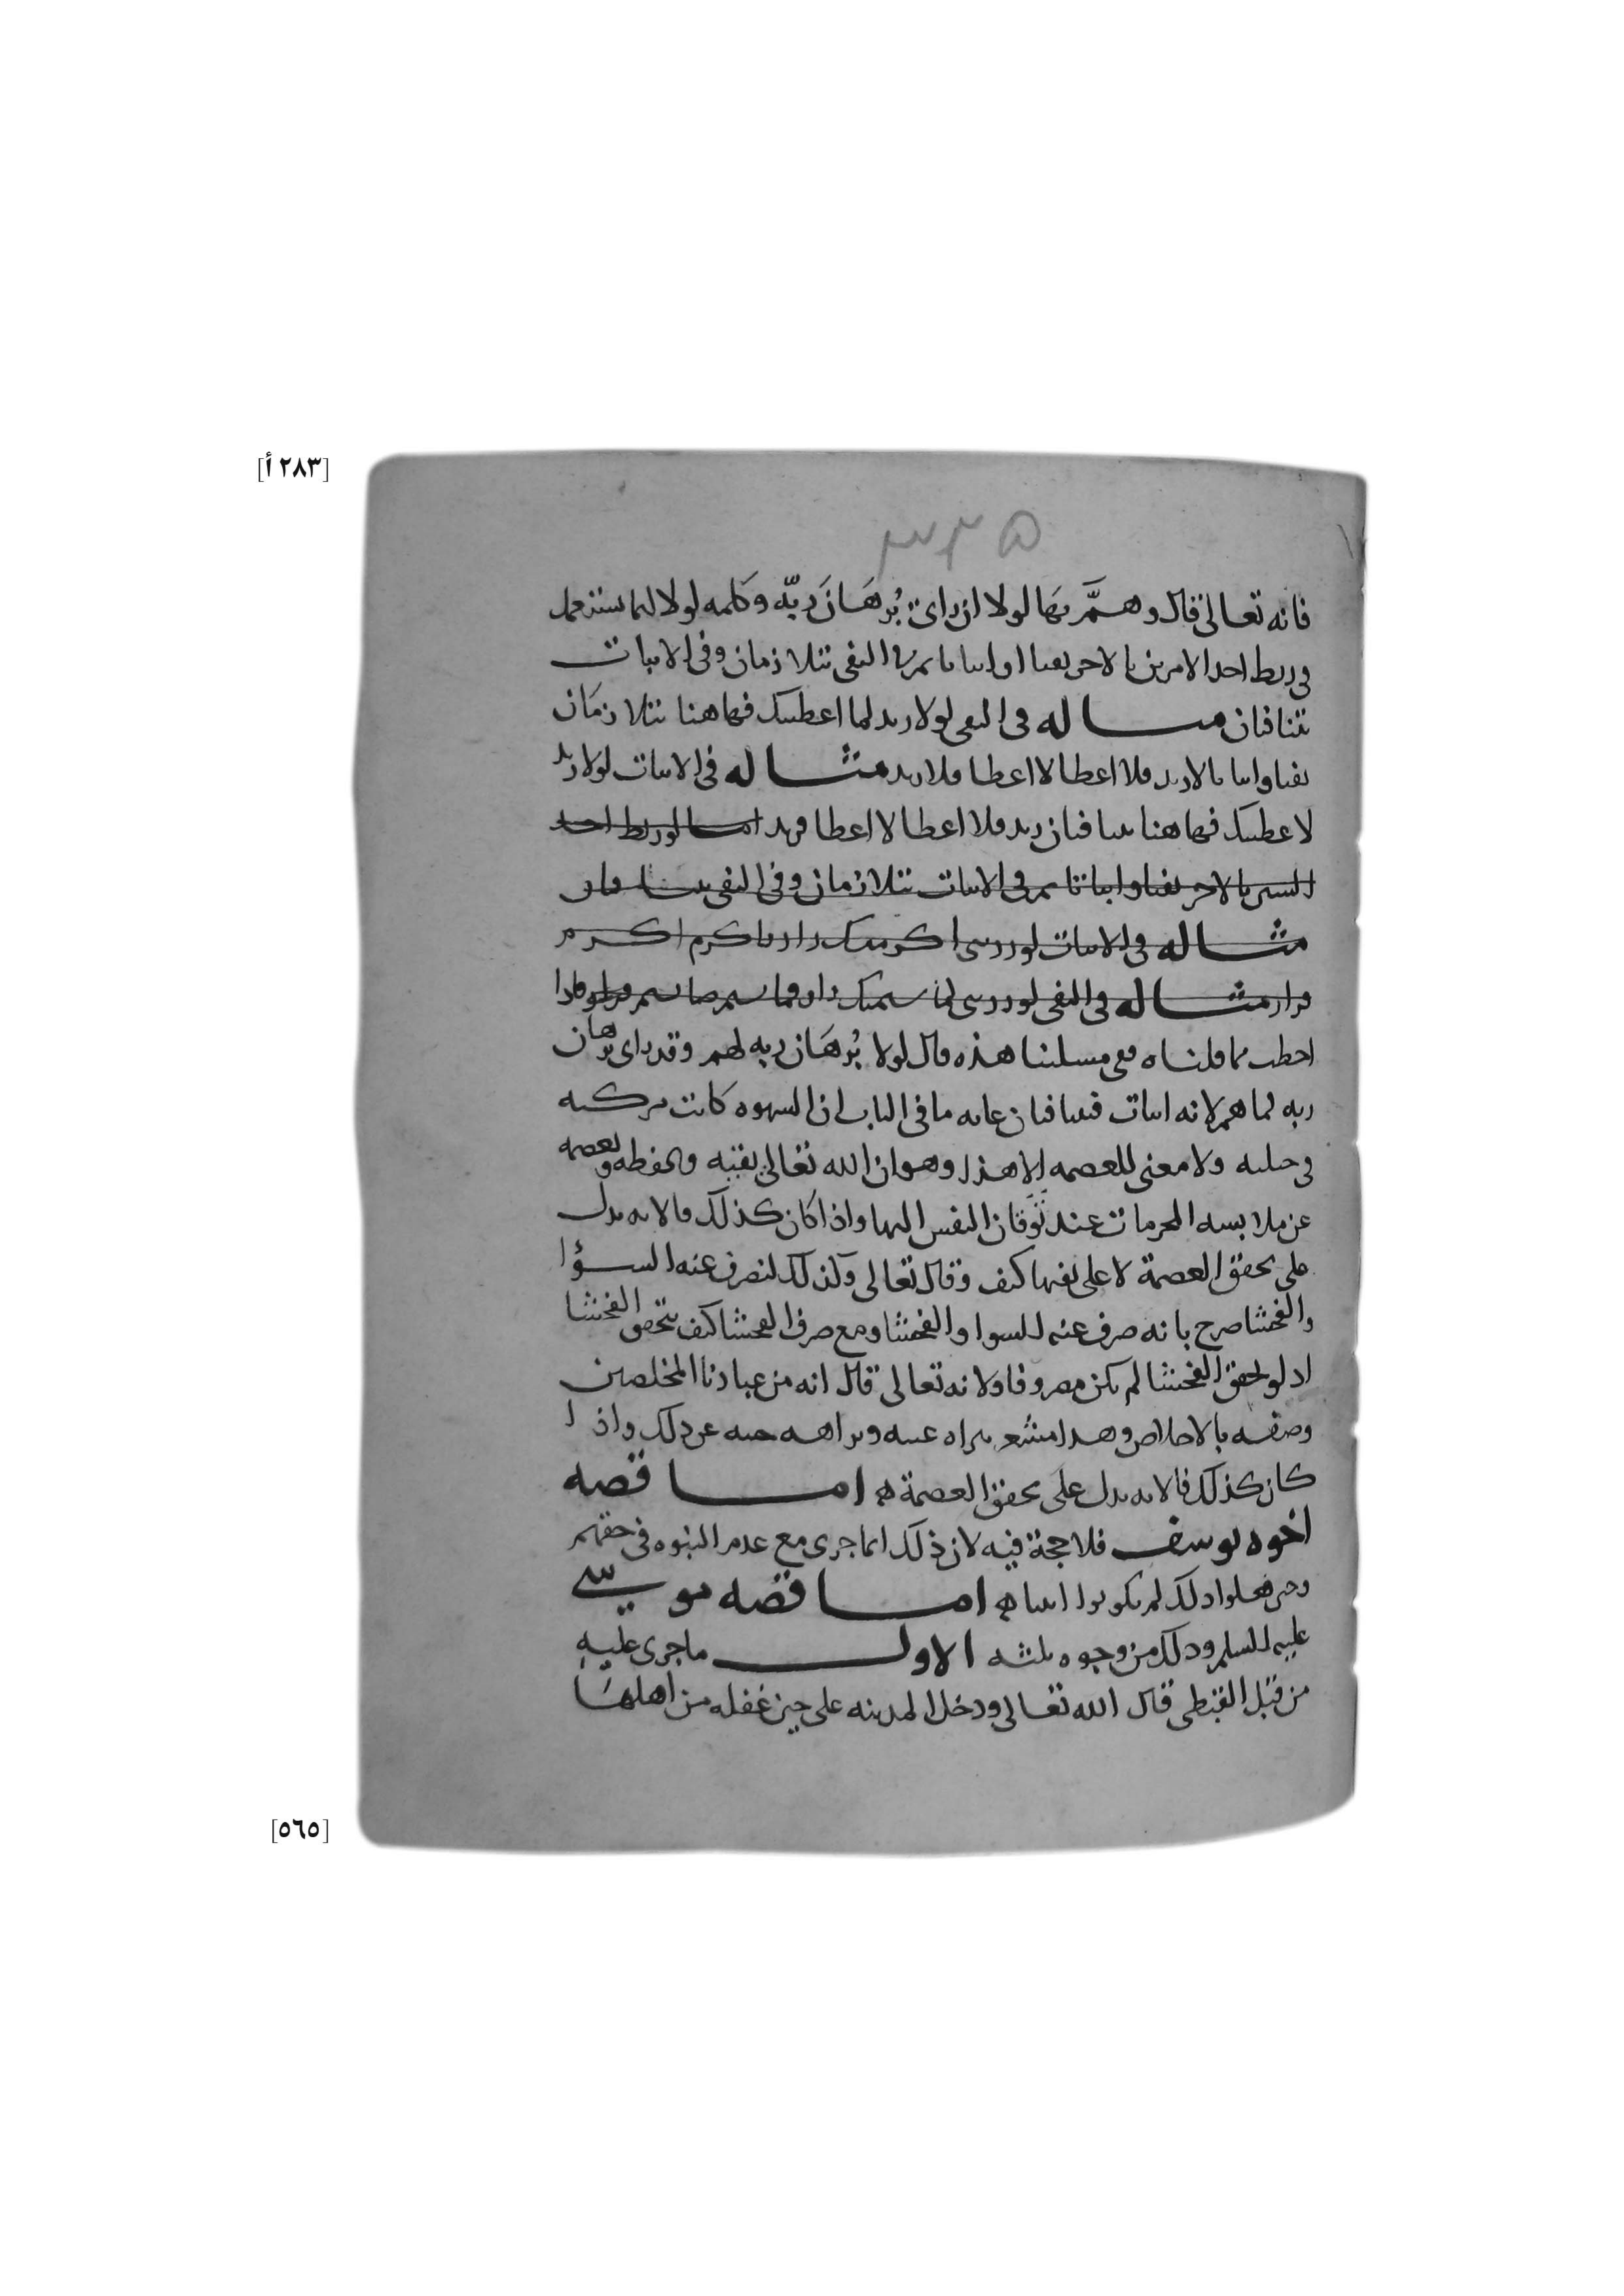 [٢٨٣ أ]
٣٣٥
فانه تعالى قال وهَمَّ بهَا لولا ان راى بُرهَانَ ربّه وكلمه لولا انما تستعمل
في ربط احد الامرين بالاخر نفيا او اثباتا ثم في النفي يتلازمان وفي الاثبات
يتنافيان مثاله في النفي لولا زيد لما اعطيتك فهاهنا يتلازمَان
نفيا واثباتا لا زيد فلا اعطا لا اعطا فلا زيد مثاله في الاثبات لولا زيد
لاعطيتك فهاهنا يتنافيان زيد فلا اعطا لا اعطا فزيد اما لو ربط احد
الشيين بالاخر نفيا واثباتا ثم في الاثبات يتلازمان وفي النفي يتنافيان
مثاله في الاثبات لو زرتني اكرمتك زار فاكرم اكرم
فزار مثاله في النفي لو زرتني لما شتمتك زار فما شتم ما شتم فزار فاذا
احطت بما قلناه ففي مسلتنا هذه قال لولا بُرهَان ربه لهم وقد راى برهان
ربه لما هم لانه اثبات فيتنافيان غايه ما في الباب ان الشهوه كانت مركبه
في جبلته ولا معنى للعصمه الا هذا وهو ان الله تعالى يقيه ويحفظه ويعصمه
عن ملابسه المحرمات عند توقان النفس اليها واذا كان كذلك فالايه تدل
على تحقق العصمة لا على نفيها كيف وقال تعالى وكذلك لنصرف عنه السؤا
والفحشا صرح بانه صرف عنه السوا والفحشا ومع صرف الفحشا كيف يتحقق الفحشا
اذ لو تحقق الفحشا لم يكن مصروفا ولانه تعالى قال انه من عبادنا المخلصين
وصفه بالاخلاص وهذا مشعر ببراه عينه ونزاهه جيبه عن ذلك واذا
كان كذلك فالايه تدل على تحقق العصمة اما قصه
اخوه يوسف فلا حجة فيه لان ذلك انما جرى مع عدم النبوه في حقهم
وحين فعلوا ذلك لم يكونوا انبيا اما قصه موسى
عليه السلم وذلك من وجوه ثلثه الاول ماجرى عليه
من قتل القبطي قال الله تعالى ودخل المدينه على حين غفله من اهلهَا
[٥٦٥]